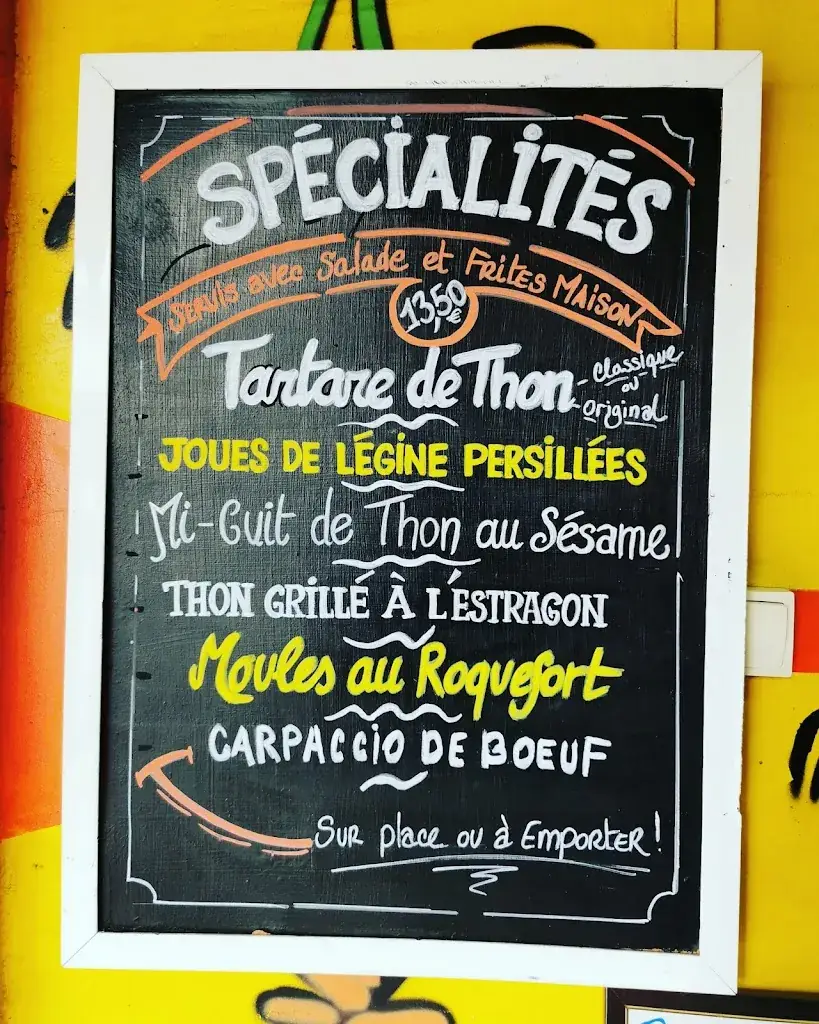 SPÉCIALITÉS
SERVIS avec Salade et FRITES MAISON
13,50€
Tartare de Thon - classique ou - original
JOUES DE LÉGINE PERSILLÉES
Mi-Cuit de Thon au Sésame
THON GRILLÉ À L'ESTRAGON
Moules au Roquefort
CARPACCIO DE BOEUF
SUR place ou à EMPORTER !